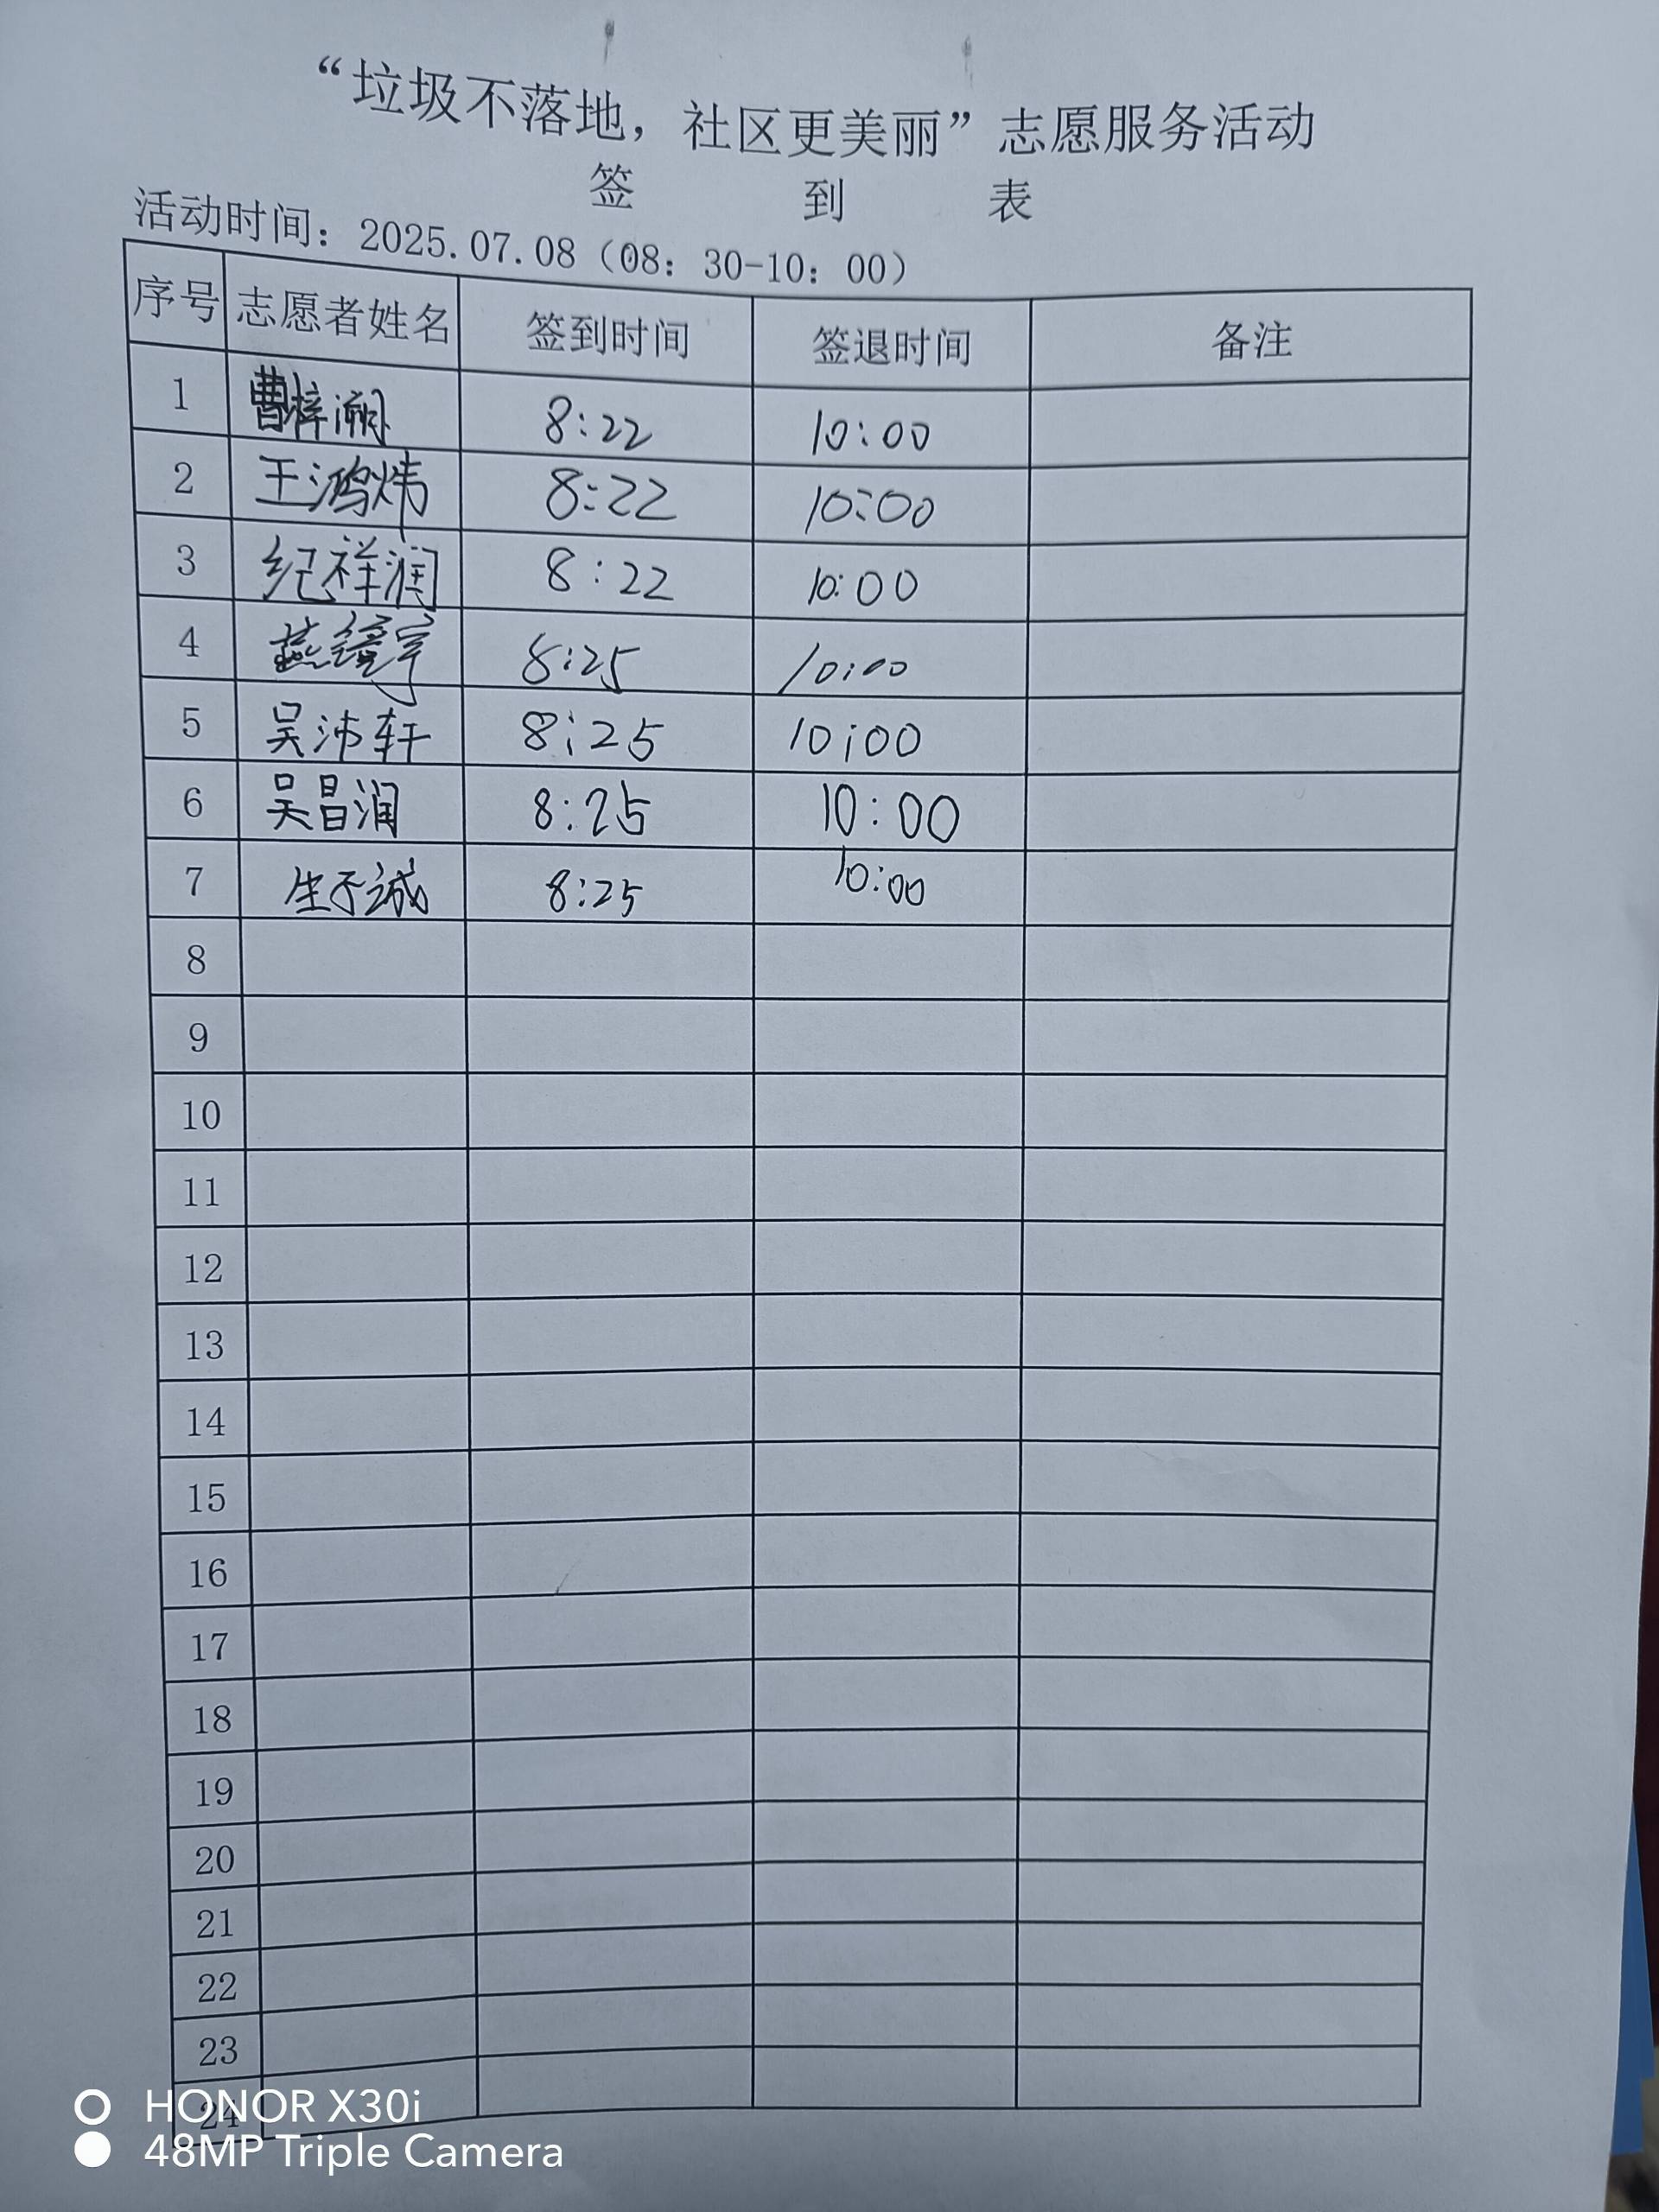 “垃圾不落地，社区更美丽”志愿服务活动
签 到 表
活动时间：2025.07.08（08：30-10：00）
序号 志愿者姓名 签到时间 签退时间 备注
1 曹梓溯 8:22 10:00
2 王鸿炜 8:22 10:00
3 纪祥润 8:22 10:00
4 燕宇 8:25 10:00
5 吴沛轩 8:25 10:00
6 吴昌润 8:25 10:00
7 生于诚 8:25 10:00
8
9
10
11
12
13
14
15
16
17
18
19
20
21
22
23
24
HONOR X30i
48MP Triple Camera